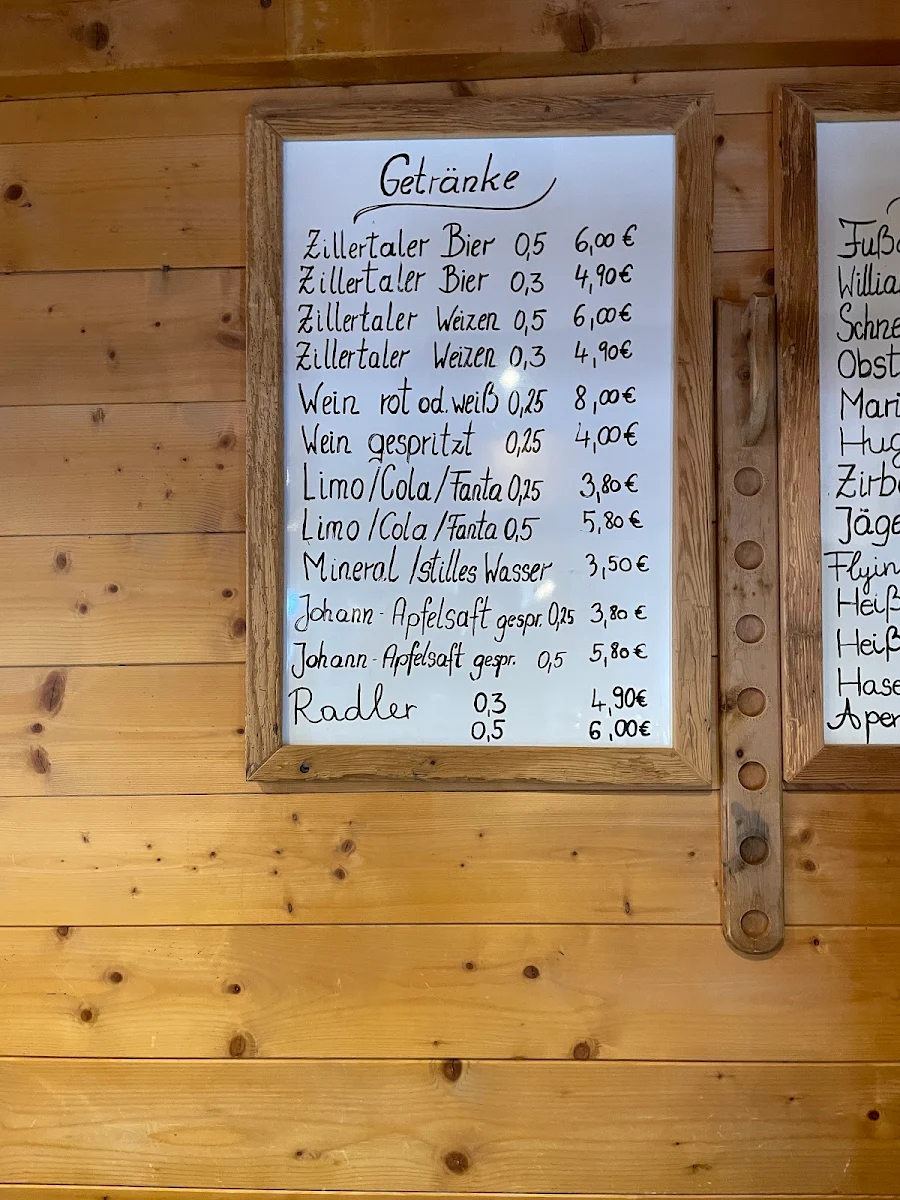 Getränke
Zillertaler Bier 0,5 6,00 €
Zillertaler Bier 0,3 4,90€
Zillertaler Weizen 0,5 6,00€
Zillertaler Weizen 0,3 4,90€
Wein rot od. weiß 0,25 8,00€
Wein gespritzt 0,25 4,00€
Limo/Cola/Fanta 0,25 3,80€
Limo/Cola/Fanta 0,5 5,80€
Mineral/stilles Wasser 3,50€
Johann-Apfelsaft gespr. 0,25 3,80€
Johann-Apfelsaft gespr. 0,5 5,80€
Radler 0,3 4,90€
0,5 6,00€